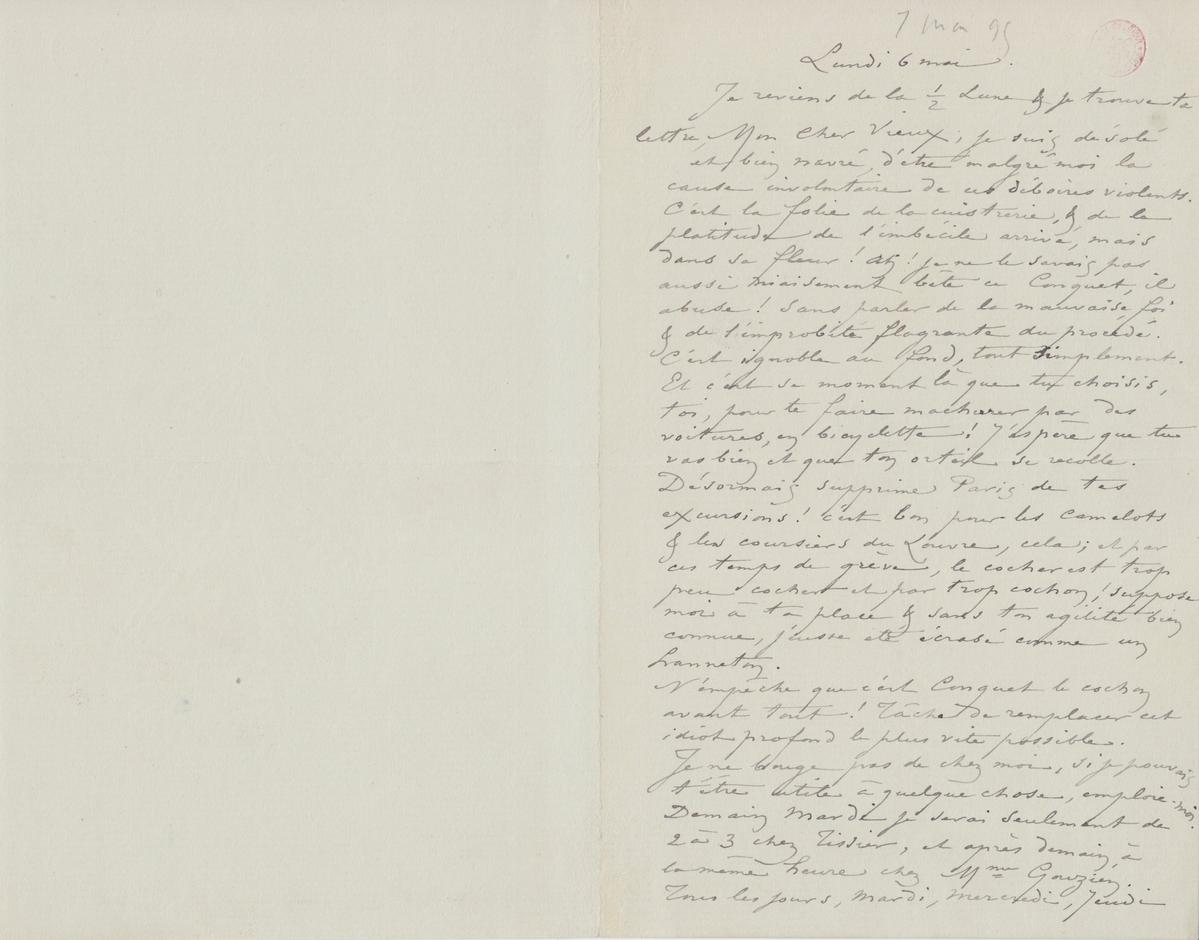 7 mai 95
Lundi 6 mai.
Je reviens de la ½ Lune & je trouve ta
lettre, Mon Cher Vieux, je suis désolé
et bien navré, d'être malgré moi la
cause involontaire de ces déboires violents.
C'est la folie de la cuistrerie, & de la
platitude de l'imbécile arrivé, mais
dans sa fleur ! Ah ! je ne le savais pas
aussi niaisement bête ce Conquet, il
abuse ! Sans parler de la mauvaise foi
& de l'improbité flagrante du procédé.
C'est ignoble au fond, tout simplement.
Et c'est ce moment là que tu choisis,
toi, pour te faire machurer par des
voitures, en bicyclette ! J'espère que tu
vas bien et que ton orteil se recolle.
Désormais supprime Paris de tes
excursions ! c'est bon pour les camelots
& les coursiers du Louvre, cela ; et par
ces temps de grève, le cocher est trop
peu cocher et par trop cochon ! suppose
moi à ta place & sans ton agilité bien
connue, j'eusse été écrasé comme un
hanneton.
N'empêche que c'est Conquet le cochon
avant tout ! Tâche de remplacer cet
idiot profond le plus vite possible.
Je ne bouge pas de chez moi, si je pouvais
t'être utile à quelque chose, emploie-moi.
Demain Mardi je serai seulement de
2 à 3 chez Tissier, et après demain, à
la même heure chez Mme Gouzien.
Tous les jours, mardi, mercredi, jeudi